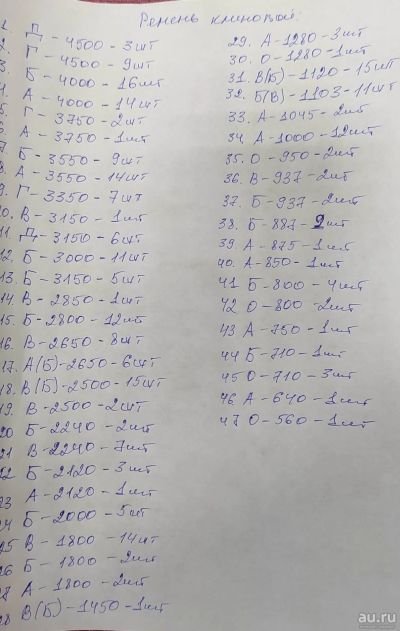 Ремень клиновой
1. Д - 4500 - 3шт
2. Г - 4500 - 9шт
3. Б - 4000 - 16шт
4. А - 4000 - 14шт
5. Г - 3750 - 2шт
6. А - 3750 - 1шт
7. Б - 3550 - 9шт
8. А - 3550 - 14шт
9. Г - 3350 - 7шт
10. В - 3150 - 1шт
11. Д - 3150 - 6шт
12. Б - 3000 - 11шт
13. Б - 3150 - 5шт
14 В - 2850 - 1шт
15. Б - 2800 - 12шт
16. В - 2650 - 8шт
17. А(Б) - 2650 - 6шт
18. В(Б) - 2500 - 15шт
19. В - 2500 - 2шт
20 Б - 2240 - 2шт
21 В - 2240 - 7шт
22 Б - 2120 - 3шт
23 А - 2120 - 1шт
24 Б - 2000 - 5шт
25 В - 1800 - 14шт
26 Б - 1800 - 2шт
27 А - 1800 - 2шт
28 В(Б) - 1450 - 1шт
29. А - 1280 - 3шт
30. О - 1280 - 1шт
31. В(Б) - 1120 - 15шт
32. Б(В) - 1103 - 11шт
33. А - 1045 - 2шт
34. А - 1000 - 12шт
35. О - 950 - 2шт
36. В - 937 - 2шт
37. Б - 937 - 2шт
38. Б - 887 - 2шт
39. А - 875 - 1шт
40. А - 850 - 1шт
41 Б - 800 - 4шт
42 О - 800 - 2шт
43 А - 750 - 1шт
44 Б - 710 - 1шт
45 О - 710 - 3шт
46 А - 640 - 1шт
47 О - 560 - 1шт
au.ru